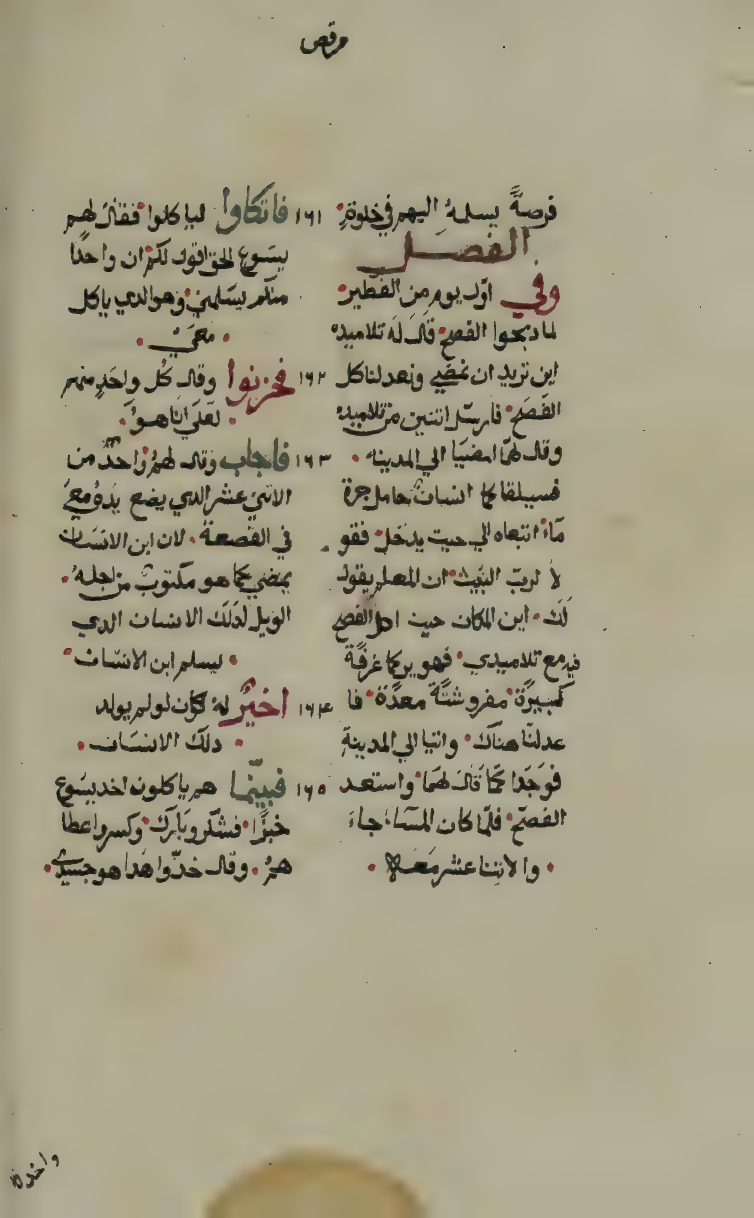 مرقص
فرصةً يسلمهُ اليهم في خلوةٍ
الفصل
وفي اوّل يوم من الفطير
لما ذبحوا الفصح قال له تلاميذه
اين تريد ان نمضي ونعد لنا كل
الفصح فارسل اثنين من تلاميده
وقال لهما امضيا الي المدينه
فسيلقاكما انسان حامل جرة
ماء اتبعاه الي حيت يدخل فقو
لا لربّ البيت ان المعلم يقول
لك اين المكان حيت اكل الفصح
فيه مع تلاميدي فهو يريكما غرفة
كبيرة مفروشة معدّة فا
عدلنا هناك واتيا الي المدينة
فوجدا كما قال لهما واستعد
الفصح فلما كان المساء جاء
والاتنا عشر معه
١٦١ فاتكاوا لياكلوا فقال لهم
يسوع الحق اقول لكم ان واحدا
منكم يسلمني وهو الدي ياكل
معي
١٦٢ فحزنوا وقال كل واحد منهم
لعلي انا هو
١٦٣ فاجاب وقال لهم واحد من
الاتني عشر الدي يضع يده معي
في القصعة لان ابن الانسان
يمضي كما هو مكتوب من اجله
الويل لدلك الانسان الدي
يسلم ابن الانسان
١٦٤ اخير له كان لو لم يولد
دلك الانسان
١٦٥ فبينما هم ياكلون اخد يسوع
خبزا فشكر وبارك وكسر واعطا
هم وقال خدوا هدا هو جسدي
واخد